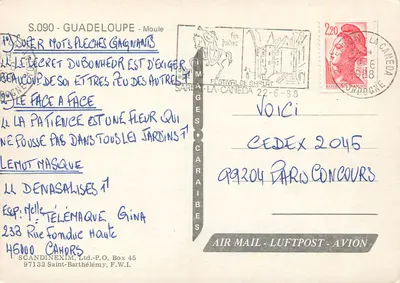 S.090 - GUADELOUPE - Moule
1°) SUPER MOTS FLECHES GAGNANTS
" LE SECRET DU BONHEUR EST D'EXIGER
BEAUCOUP DE SOI ET TRES PEU DES AUTRES "
2°) LE FACE A FACE
" LA PATIENCE EST UNE FLEUR QUI
NE POUSSE PAS DANS TOUS LES JARDINS "
LE MOT MASQUE
" DENASALISES "
Exp: Melle TÉLÉMAQUE Gina
238 Rue Fondue Haute
46000 CAHORS
SCANDINEXIM, Ltd., P.O. Box 45
97133 Saint-Barthélémy, F.W.I.
IMAGES CARAIBES
SARLAT-LA-CANEDA
22-6-88
2,20
LA CANEDA
DORDOGNE
VOICI
CEDEX 2045
99204 PARIS CONCOURS
AIR MAIL - LUFTPOST - AVION